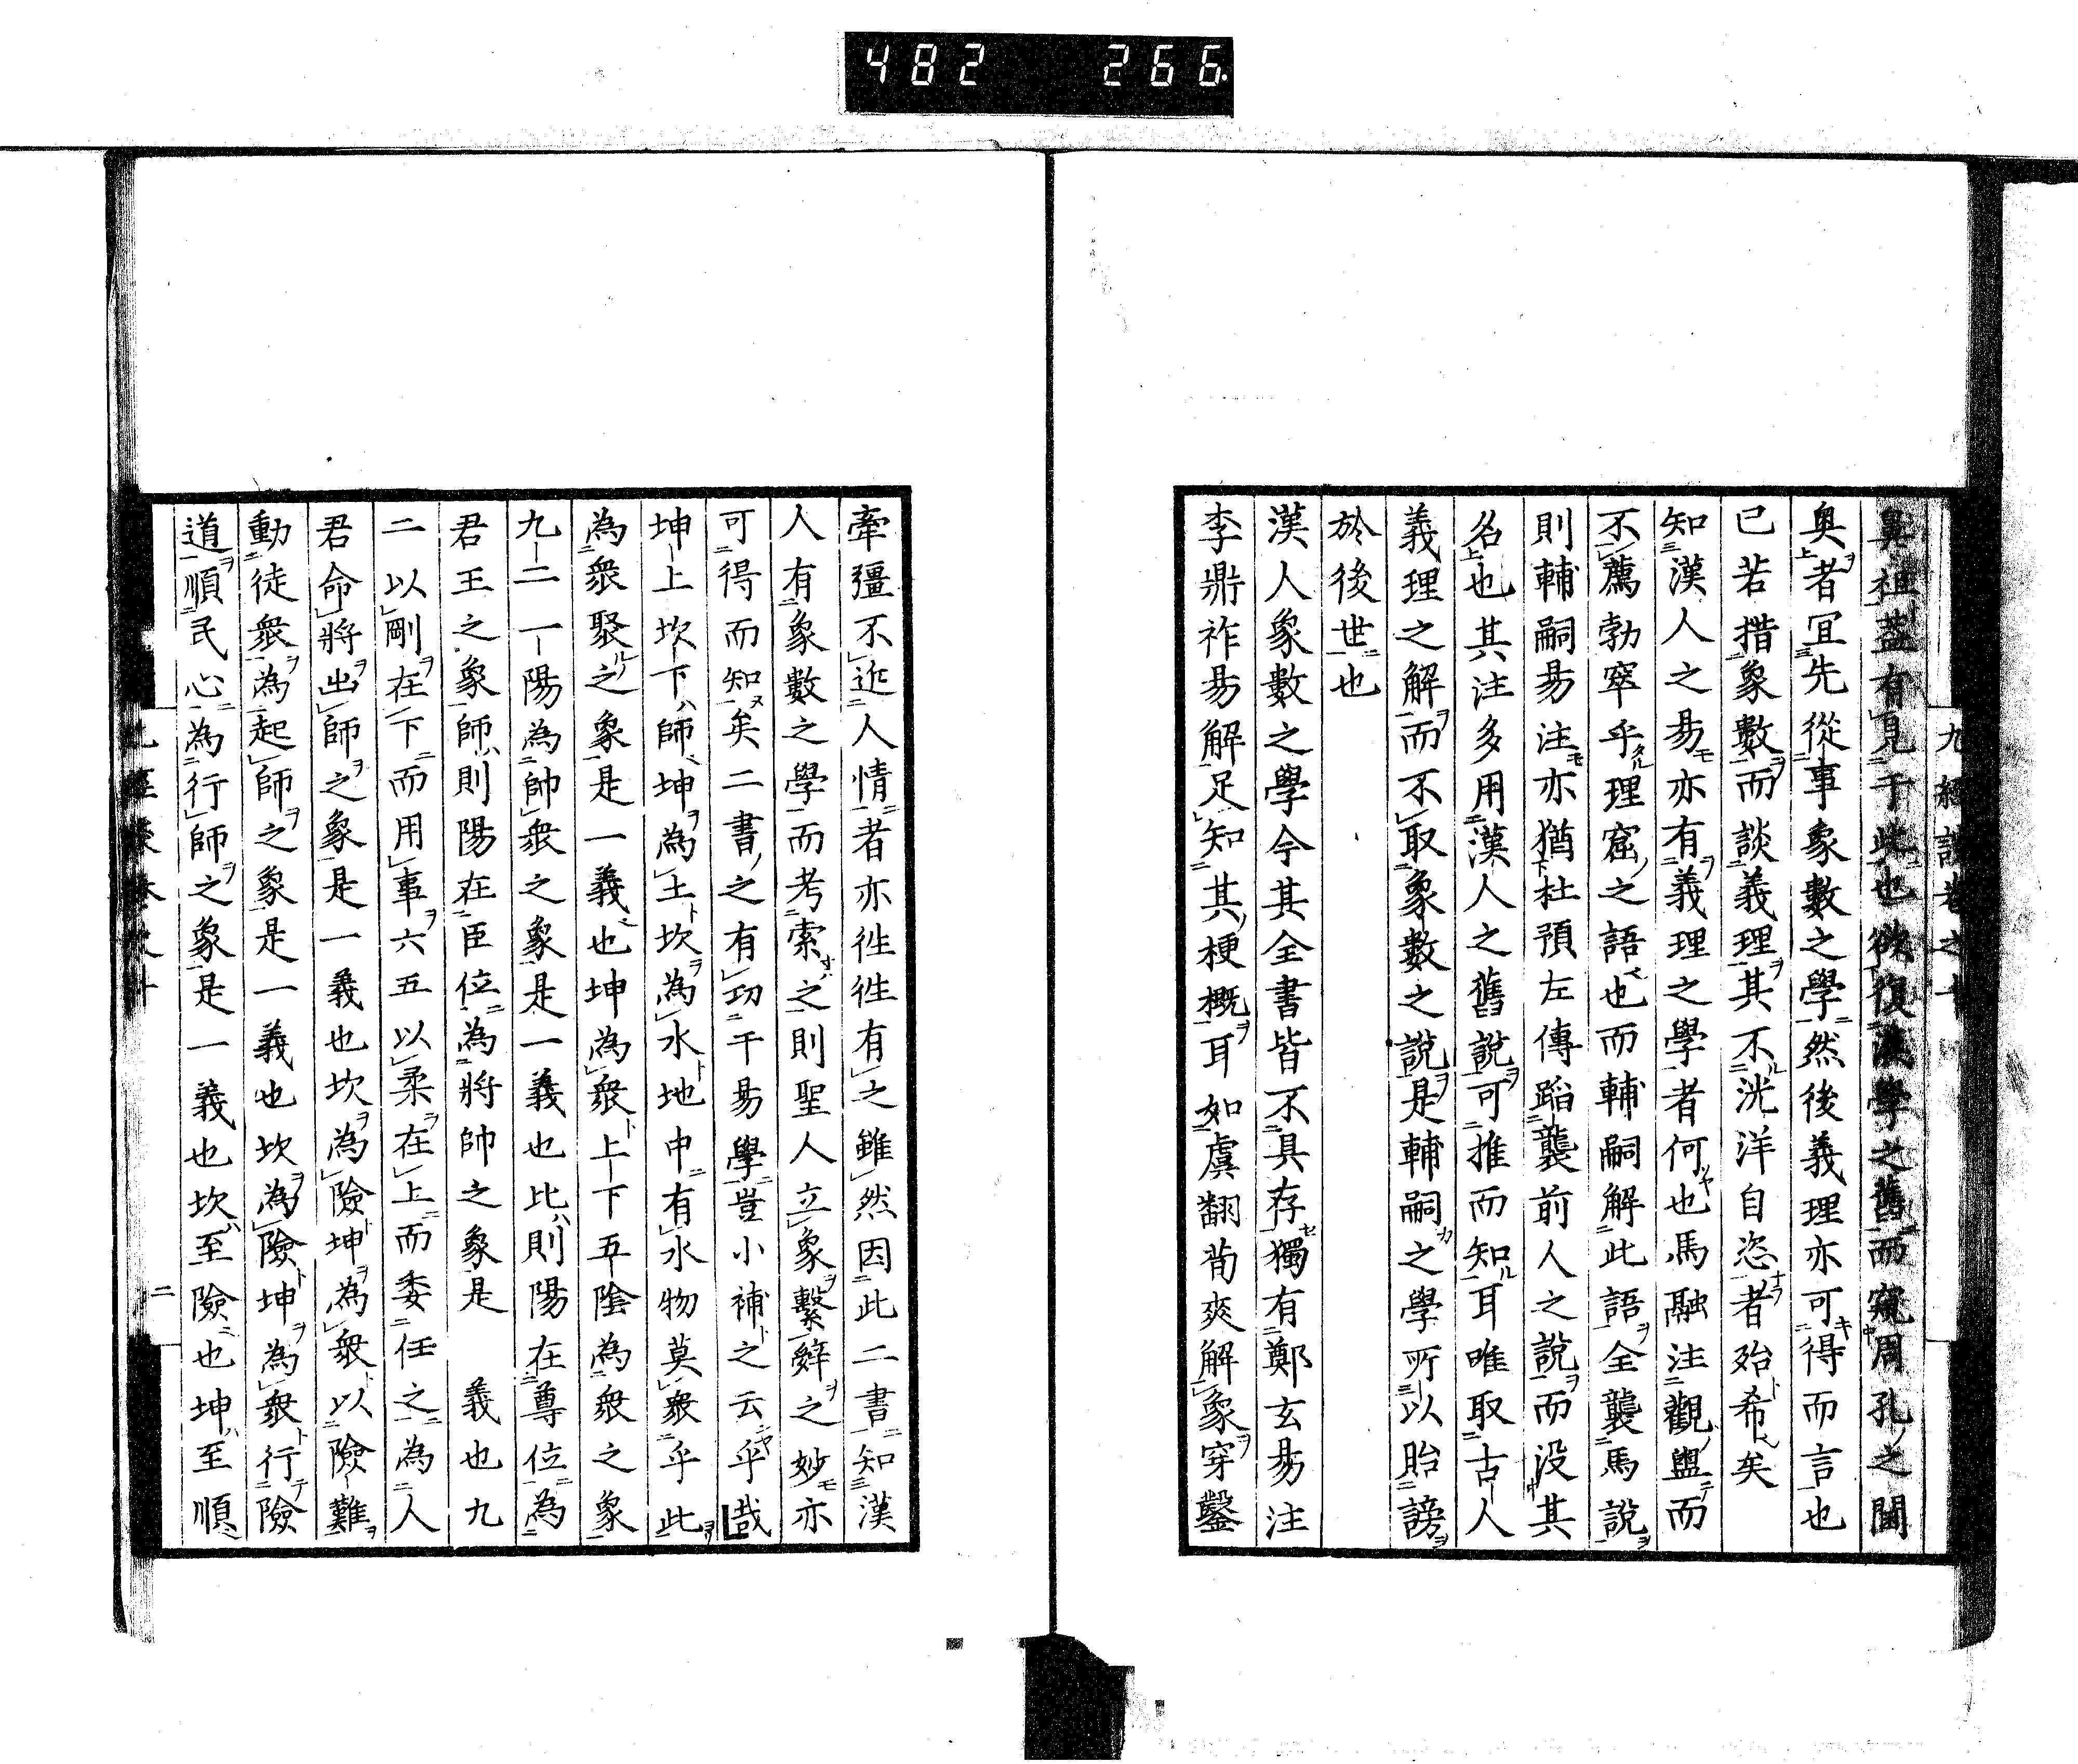 482 266
九經談卷之十
鼻祖蓋有見于此也欲復漢學之舊而窺周孔之閫
奧者宜先從事象數之學然後義理亦可得而言也
已若措象數而談義理其不洸洋自恣者殆希矣
知漢人之易亦有義理之學者何也馬融注觀盥而
不薦勃窣乎理窟之語也而輔嗣解此語全襲馬說
則輔嗣易注亦猶杜預左傳蹈襲前人之說而没其
名也其注多用漢人之舊說可推而知耳唯取古人
義理之解而不取象數之說是輔嗣之學所以貽謗
於後世也
漢人象數之學今其全書皆不具存獨有鄭玄易注
李鼎祚易解足知其梗概耳如虞翻荀爽解象穿鑿
牽彊不近人情者亦徃徃有之雖然因此二書知漢
人有象數之學而考索之則聖人立象繫辭之妙亦
可得而知矣二書之有功于易學豈小補之云乎哉
坤上坎下師坤為土坎為水地中有水物莫衆乎此
為衆聚之象是一義也坤為衆上下五陰為衆之象
九二一陽為帥衆之象是一義也比則陽在尊位為
君王之象師則陽在臣位為將帥之象是 義也九
二以剛在下而用事六五以柔在上而委任之為人
君命將出師之象是一義也坎為險坤為衆以險難
動徒衆為起師之象是一義也坎為險坤為衆行險
道順民心為行師之象是一義也坎至險也坤至順
二